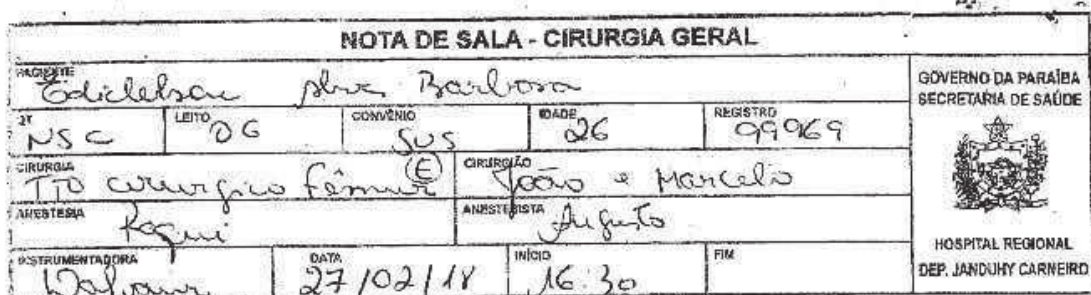 NOTA DE SALA - CIRURGIA GERAL
PACIENTE
Ediclebson Alves Barbosa
QT NSC LEITO 06 CONVÊNIO SUS IDADE 26 REGISTRO 99969
CIRURGIA TTO cirurgico fêmur (E) CIRURGIÃO João e Marcelo
ANESTESIA Raqui ANESTESISTA Augusto
INSTRUMENTADORA DATA 27/02/18 INÍCIO 16:30 FIM
GOVERNO DA PARAÍBA
SECRETARIA DE SAÚDE
HOSPITAL REGIONAL
DEP. JANDUHY CARNEIRO